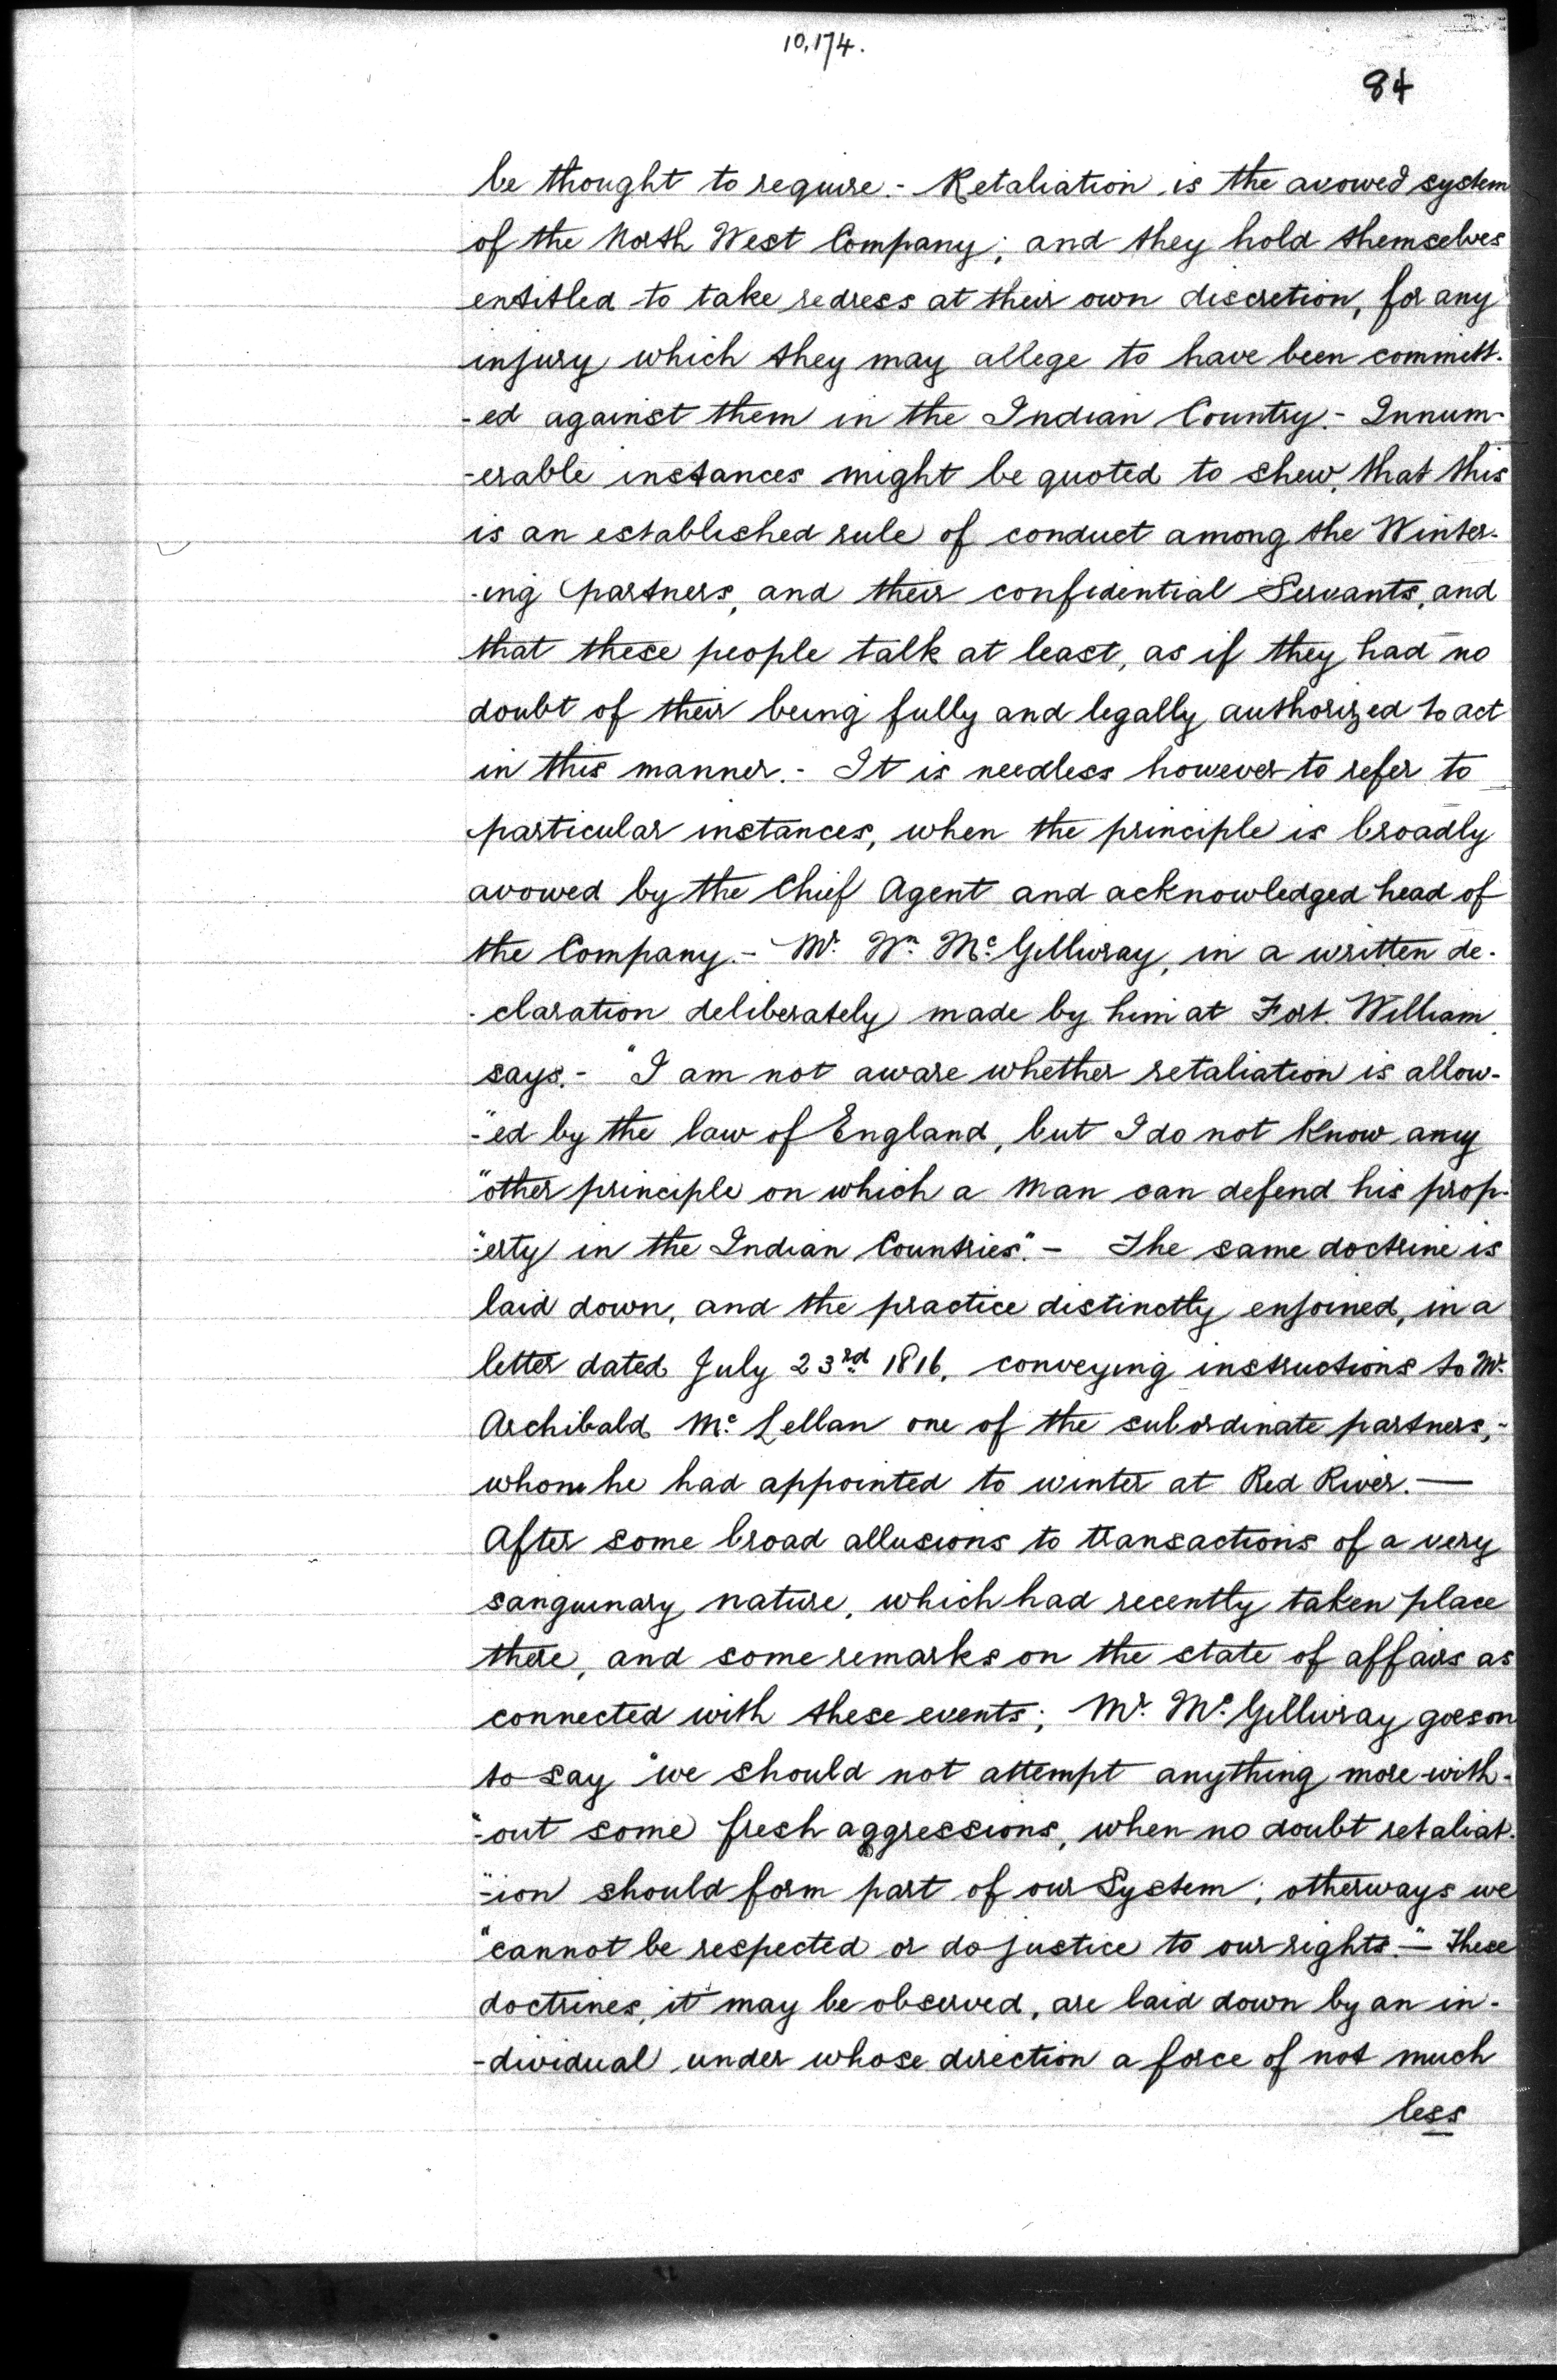 10,174.
84
be thought to require.- Retaliation is the avowed system
of the North West Company; and they hold themselves
entitled to take redress at their own discretion, for any
injury which they may allege to have been committ-
-ed against them in the Indian Country.- Innum-
-erable instances might be quoted to shew, that this
is an established rule of conduct among the Winter-
-ing partners, and their confidential Servants, and
that these people talk at least, as if they had no
doubt of their being fully and legally authorized to act
in this manner.- It is needless however to refer to
particular instances, when the principle is broadly
avowed by the Chief Agent and acknowledged head of
the Company.- Mr. Wm. Mc. Gillivray, in a written de-
-claration deliberately made by him at Fort William
says.- "I am not aware whether retaliation is allow-
-"ed by the law of England, but I do not know any
"other principle on which a Man can defend his prop-
-"erty in the Indian Countries".- The same doctrine is
laid down, and the practice distinctly enjoined, in a
letter dated July 23rd 1816, conveying instructions to Mr.
Archibald Mc. Lellan one of the subordinate partners,-
whom he had appointed to winter at Red River.—
After some broad allusions to transactions of a very
sanguinary nature, which had recently taken place
there, and some remarks on the state of affairs as
connected with these events; Mr. Mc. Gillivray goes on
to say "we should not attempt anything more with-
"-out some fresh aggressions, when no doubt retaliat-
"-ion should form part of our System; otherways we
"cannot be respected or do justice to our rights."- These
doctrines, it may be observed, are laid down by an in-
-dividual under whose direction a force of not much
less